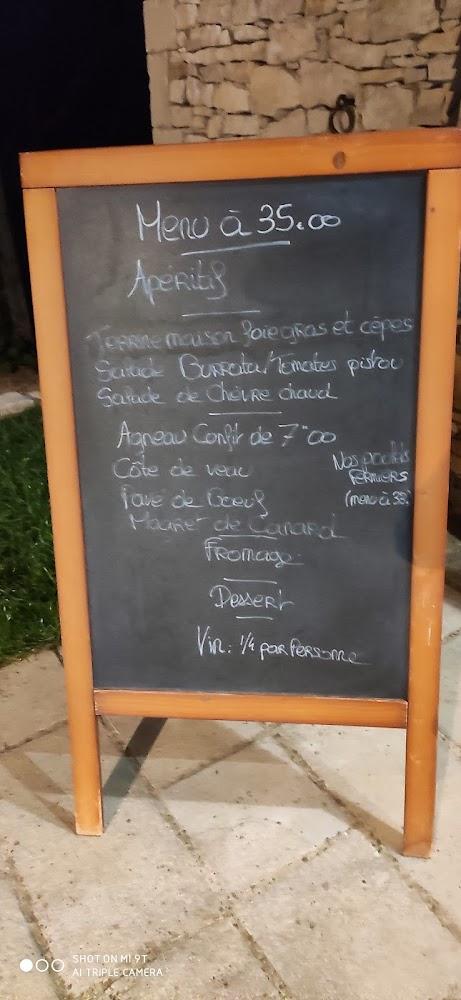 Menu à 35.00
Apéritif
Terrine maison foie gras et cèpes
Salade Burrata/Tomates pistou
Salade de Chèvre chaud
Agneau Confit de 7"00
Côte de veau
Nos produits
fermiers
(menu à 38)
Pavé de Boeuf
Magret de Canard
Fromage
Dessert
Vin: 1/4 par Personne
SHOT ON MI 9T
AI TRIPLE CAMERA